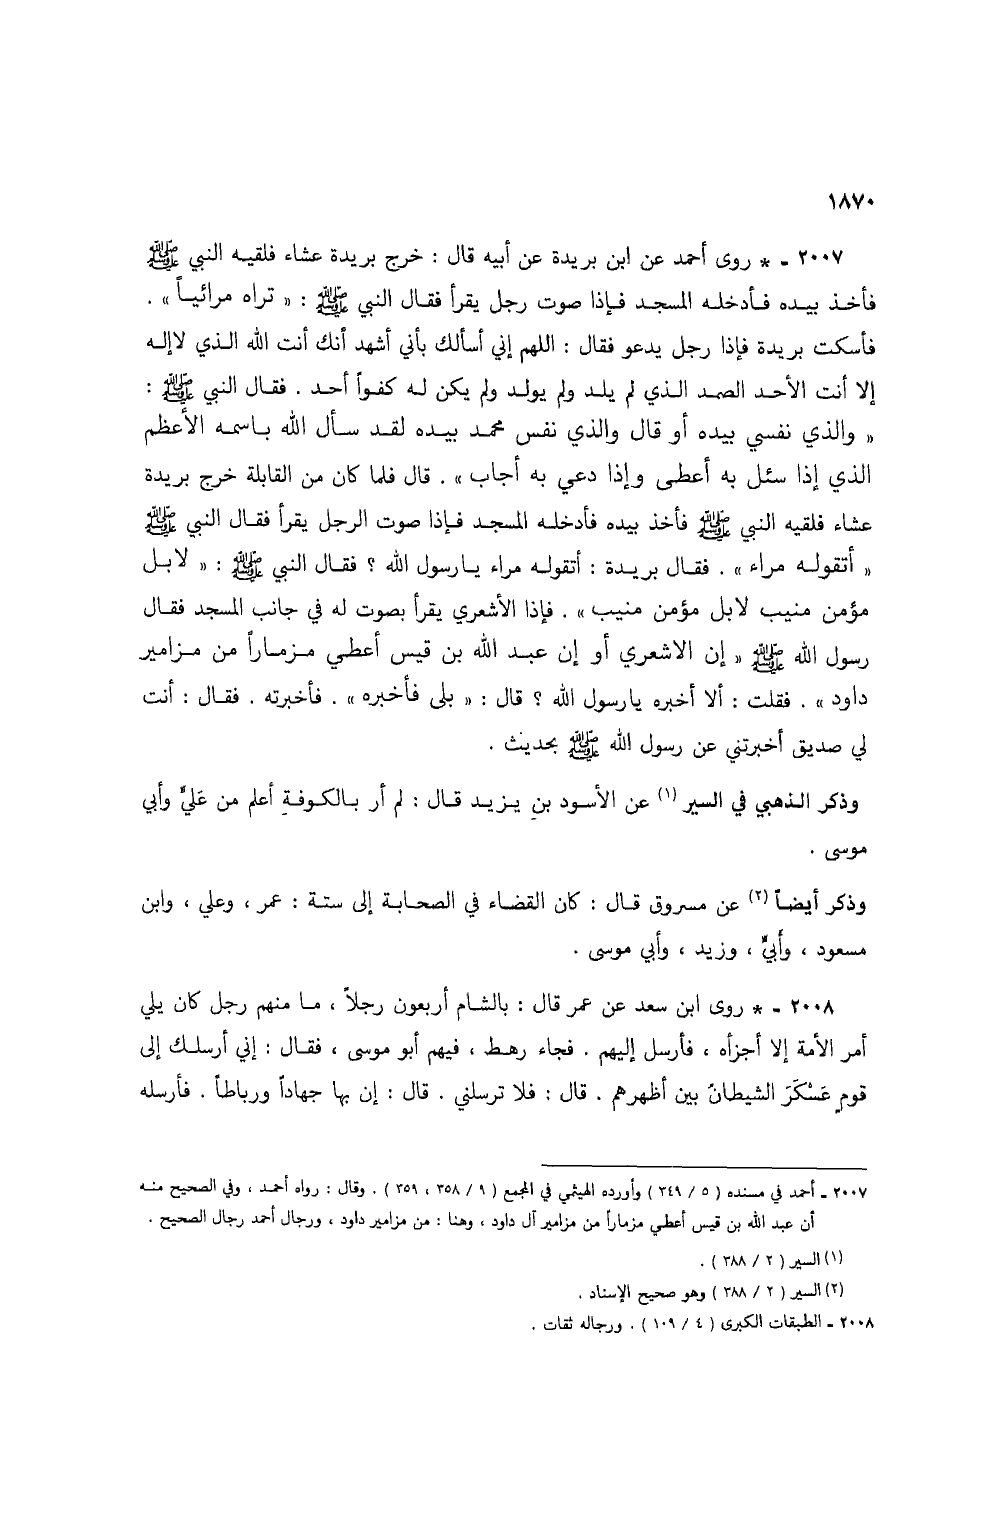 ١٨٧٠
٢٠٠٧ - * روى أحمد عن ابن بريدة عن أبيه قال : خرج بريدة عشاء فلقيه النبي ﷺ
فأخذ بيده فأدخله المسجد فإذا صوت رجل يقرأ فقال النبي ﷺ : « تراه مرائياً » .
فأسكت بريدة فإذا رجل يدعو فقال : اللهم إني أسألك بأني أشهد أنك أنت الله الذي لاإله
إلا أنت الأحد الصمد الذي لم يلد ولم يولد ولم يكن له كفواً أحد . فقال النبي ﷺ :
« والذي نفسي بيده أو قال والذي نفس محمد بيده لقد سأل الله باسمه الأعظم
الذي إذا سئل به أعطى وإذا دعي به أجاب » . قال فلما كان من القابلة خرج بريدة
عشاء فلقيه النبي ﷺ فأخذ بيده فأدخله المسجد فإذا صوت الرجل يقرأ فقال النبي ﷺ
« أتقوله مراء » . فقال بريدة : أتقوله مراء يارسول الله ؟ فقال النبي ﷺ : « لابل
مؤمن منيب لابل مؤمن منيب » . فإذا الأشعري يقرأ بصوت له في جانب المسجد فقال
رسول الله ﷺ « إن الاشعري أو إن عبد الله بن قيس أعطي مزماراً من مزامير
داود » . فقلت : ألا أخبره يارسول الله ؟ قال : « بلى فأخبره » . فأخبرته . فقال : أنت
لي صديق أخبرتني عن رسول الله ﷺ بحديث .
وذكر الذهبي في السير (١) عن الأسود بنِ يزيد قال : لم أر بالكوفةِ أعلم من عَليٍّ وأبي
موسى .
وذكر أيضاً (٢) عن مسروق قال : كان القضاء في الصحابة إلى ستة : عمر ، وعلي ، وابن
مسعود ، وأُبيٍّ ، وزيد ، وأبي موسى .
٢٠٠٨ - * روى ابن سعد عن عمر قال : بالشام أربعون رجلاً ، ما منهم رجل كان يلي
أمر الأمة إلا أجزأه ، فأرسل إليهم . فجاء رهط ، فيهم أبو موسى ، فقال : إني أرسلك إلى
قومٍ عَسْكَرَ الشيطانُ بين أظهرهم . قال : فلا ترسلني . قال : إن بها جهاداً ورباطاً . فأرسله
٢٠٠٧ - أحمد في مسنده ( ٥ / ٣٤٩ ) وأورده الهيثمي في المجمع ( ٩ / ٣٥٨ ، ٣٥٩ ) . وقال : رواه أحمد ، وفي الصحيح منه
أن عبد الله بن قيس أعطي مزماراً من مزامير آل داود ، وهنا : من مزامير داود ، ورجال أحمد رجال الصحيح .
(١) السير ( ٢ / ٣٨٨ ) .
(٢) السير ( ٢ / ٣٨٨ ) وهو صحيح الإسناد .
٢٠٠٨ - الطبقات الكبرى ( ٤ / ١٠٩ ) . ورجاله ثقات .